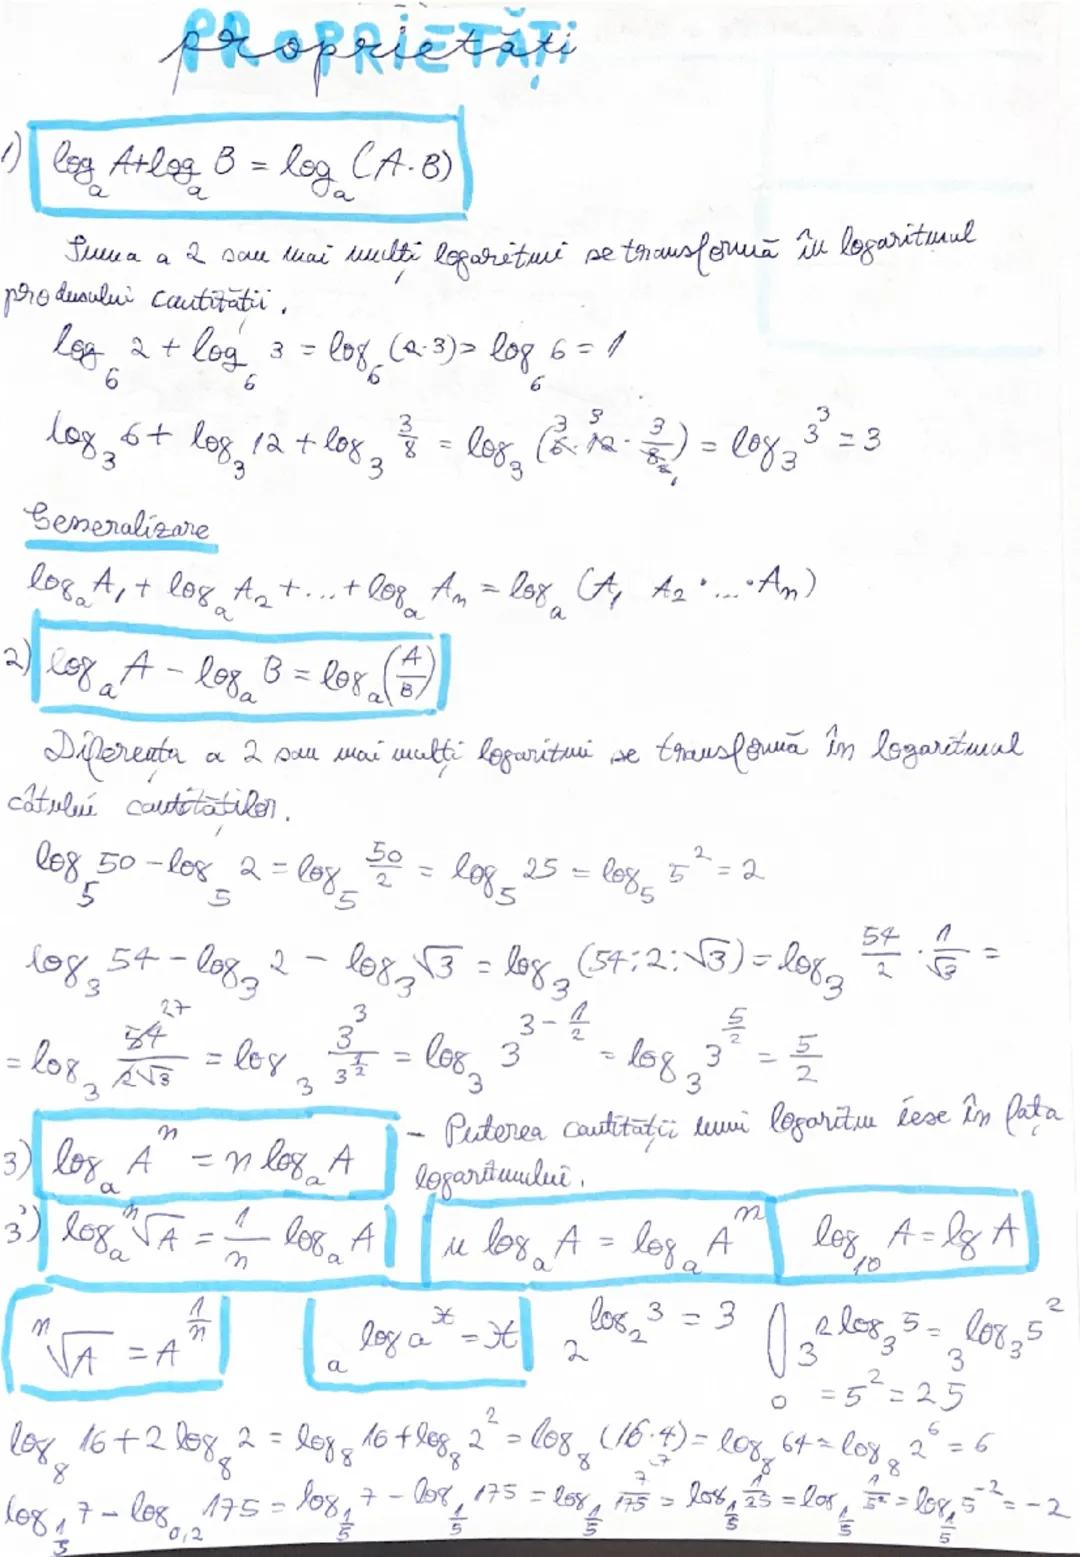 proprietăți
PROPRIETĂȚI
1) log_a A + log_a B = log_a (A·B)
Suma a 2 sau mai mulți logaritmi se transformă în logaritmul
produsului cantității.
log_6 2 + log_6 3 = log_6 (2·3) = log_6 6 = 1
log_3 6 + log_3 12 + log_3 3/8 = log_3 (6·12·3/8) = log_3 3^3 = 3
Generalizare
log_a A_1 + log_a A_2 + ... + log_a A_n = log_a (A_1 A_2 · ... · A_n)
2) log_a A - log_a B = log_a (A/B)
Diferența a 2 sau mai mulți logaritmi se transformă în logaritmul
câtului cantităților.
log_5 50 - log_5 2 = log_5 50/2 = log_5 25 = log_5 5^2 = 2
log_3 54 - log_3 2 - log_3 √3 = log_3 (54:2:√3) = log_3 54/2 · 1/√3 =
= log_3 54/(2√3) 27 = log_3 3^3/3^(1/2) = log_3 3^(3-1/2) = log_3 3^(5/2) = 5/2
3) log_a A^n = n log_a A - Puterea cantității unui logaritm iese în fața
logaritmului.
3') log_a ⁿ√A = 1/n log_a A n log_a A = log_a A^n log_10 A = lg A
ⁿ√A = A^(1/n) a^(log a^x) = x 2^(log_2 3) = 3 3^(2 log_3 5) = 3^(log_3 5^2)
= 5^2 = 25
log_8 16 + 2 log_8 2 = log_8 16 + log_8 2^2 = log_8 (16·4) = log_8 64 = log_8 2^6 = 6
log_(1/5) 7 - log_0,2 175 = log_(1/5) 7 - log_(1/5) 175 = log_(1/5) 7/175 = log_(1/5) 1/25 = log_(1/5) 1/5^2 = log_(1/5) 5^-2 = -2